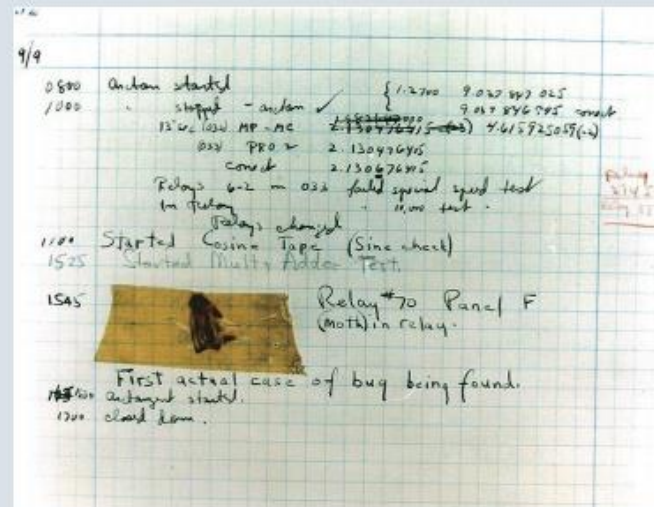 9/9
0800 Antan started { 1.2700 9.037 847 025
1000 " stopped - antan ✓ 9.037 846 795 correct
13"UC (032) MP - MC 2.130476415 4.615925059(-2)
(033) PRO 2 2.130476415
correct 2.130676415
Relays 6-2 in 033 failed special speed test
In Relay " 10,000 test .
Relays changed
1100 Started Cosine Tape (Sine check)
1525 Started Mult + Adder Test.
1545 Relay #70 Panel F
(Moth) in relay.
First actual case of bug being found.
1630 antangent started.
1700 closed down.